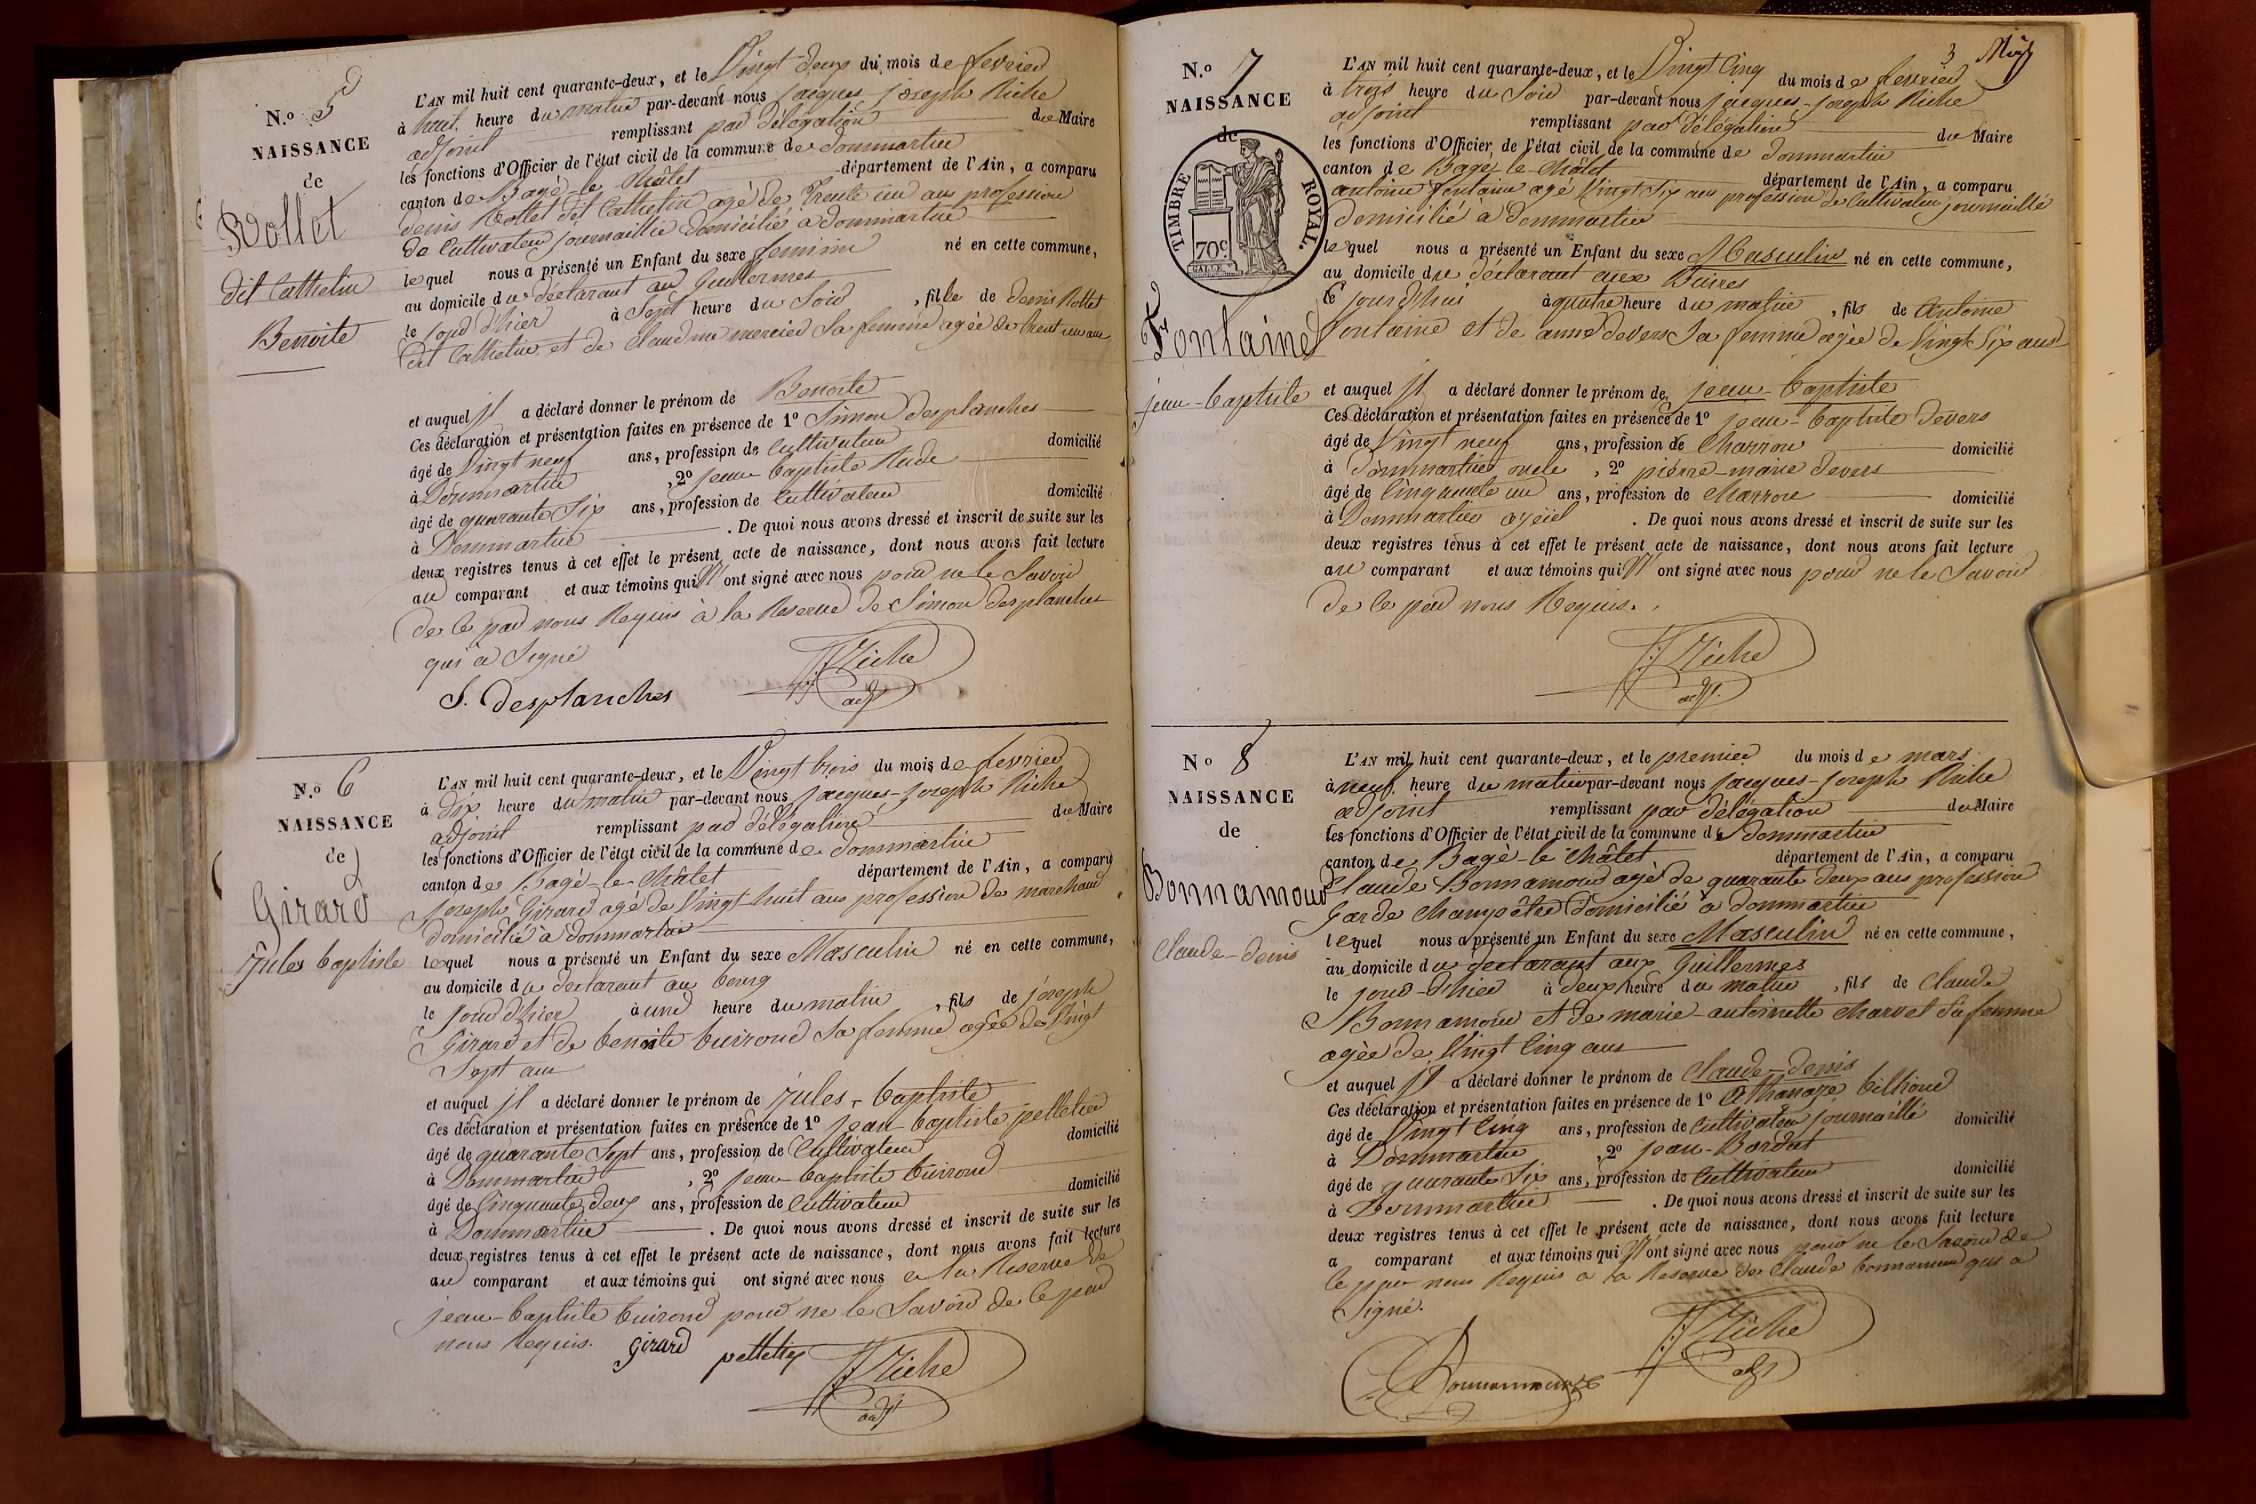 N.º 5
NAISSANCE
de
Rollet
dit Cathelin
Benoite
L'AN mil huit cent quarante-deux, et le Vingt deux du mois de fevrier
à huit heure du matin par-devant nous jacques-joseph Riche
adjoint remplissant par délégation du Maire
les fonctions d'Officier de l'état civil de la commune de dommartin
canton de Bagé-le-Châtel département de l'Ain, a comparu
denis Rollet dit Cathelin agé de Trente un ans profession
de Cultivateur journaillié domicilié a dommartin
lequel nous a présenté un Enfant du sexe feminin né en cette commune,
au domicile du déclarant au Guillermes
le jour d'hier à Sept heure du Soir, fille de denis Rollet
dit Cathelin et de Claudine mercier Sa femme agée de trent un ans
et auquel jl a déclaré donner le prénom de Benoite
Ces déclaration et présentation faites en présence de 1º Simon desplanches
âgé de Vingt neuf ans, profession de Cultivateur domicilié
à Dommartin, 2º jean-baptiste Rude
âgé de quarante Six ans, profession de Cultivateur domicilié
à Dommartin. De quoi nous avons dressé et inscrit de suite sur les
deux registres tenus à cet effet le présent acte de naissance, dont nous avons fait lecture
au comparant et aux témoins qui N' ont signé avec nous pour ne le Savoir
de ce par nous Requis à la Reserve de Simon desplanches
qui a Signé
S. Desplanches
JJ Riche
adjt
N.º 6
NAISSANCE
de
Girard
jules baptiste
L'AN mil huit cent quarante-deux, et le Vingt trois du mois de fevrier
à dix heure du matin par-devant nous jacques-joseph Riche
adjoint remplissant par délégation du Maire
les fonctions d'Officier de l'état civil de la commune de dommartin
canton de Bagé-le-Châtel département de l'Ain, a comparu
joseph Girard agé de Vingt huit ans profession de marchand
domicilié à dommartin
lequel nous a présenté un Enfant du sexe Masculin né en cette commune,
au domicile du declarant au bourg
le jour d'hier à une heure du matin, fils de joseph
Girard et de benoite buiroud Sa femme agée de Vingt
Sept ans
et auquel jl a déclaré donner le prénom de jules-baptiste
Ces déclaration et présentation faites en présence de 1º jean-baptiste pelletier
âgé de quarante Sept ans, profession de Cultivateur domicilié
à Dommartin, 2º jean-baptiste buiroud
âgé de Cinquante deux ans, profession de Cultivateur domicilié
à Dommartin. De quoi nous avons dressé et inscrit de suite sur les
deux registres tenus à cet effet le présent acte de naissance, dont nous avons fait lecture
au comparant et aux témoins qui ont signé avec nous a la Reserve de
jean-baptiste buiroud pour ne le Savoir de ce par
nous Requis. Girard pelletier JJ Riche
adjt
3
N.º 7
NAISSANCE
de
TIMBRE ROYAL.
70c
Fontaine
jean-baptiste
L'AN mil huit cent quarante-deux, et le Vingt Cinq du mois de fevrier
à trois heure du Soir par-devant nous jacques-joseph Riche
adjoint remplissant par délégation du Maire
les fonctions d'Officier de l'état civil de la commune de dommartin
canton de Bagé-le-Châtel département de l'Ain, a comparu
antoine fontaine agé Vingt Six ans profession de Cultivateur journaillié
domicilié à dommartin
lequel nous a présenté un Enfant du sexe Masculin né en cette commune,
au domicile du déclarant aux Buires
le jourd'hui à quatre heure du matin, fils de Antoine
fontaine et de anne devers Sa femme agée de Vingt Six ans
et auquel jl a déclaré donner le prénom de jean-baptiste
Ces déclaration et présentation faites en présence de 1º jean-baptiste devers
âgé de Vingt neuf ans, profession de Charron domicilié
à Dommartin oncle, 2º pierre-marie devers
âgé de Cinquante un ans, profession de Charron domicilié
à Dommartin ayeul. De quoi nous avons dressé et inscrit de suite sur les
deux registres tenus à cet effet le présent acte de naissance, dont nous avons fait lecture
au comparant et aux témoins qui N' ont signé avec nous pour ne le Savoir
de ce par nous Requis.
JJ Riche
adjt.
Nº 8
NAISSANCE
de
Bonnamour
Claude-denis
L'AN mil huit cent quarante-deux, et le premier du mois de mars
à neuf heure du matin par-devant nous jacques-joseph Riche
adjoint remplissant par délégation du Maire
les fonctions d'Officier de l'état civil de la commune de dommartin
canton de Bagé-le-Châtel département de l'Ain, a comparu
Claude Bonnamour agé de quarante deux ans profession
Garde Champêtre domicilié a dommartin
lequel nous a présenté un Enfant du sexe Masculin né en cette commune,
au domicile du declarant aux Guillermes
le jour-d'hier à deux heure du matin, fils de Claude
Bonnamour et de marie-antoinette Charvet Sa femme
agée de Vingt Cinq ans
et auquel jl a déclaré donner le prénom de Claude-denis
Ces déclaration et présentation faites en présence de 1º Athanaze billioud
âgé de Vingt Cinq ans, profession de Cultivateur journaillié domicilié
à Dommartin, 2º jean-Bordat
âgé de quarante Six ans, profession de Cultivateur domicilié
à Dommartin. De quoi nous avons dressé et inscrit de suite sur les
deux registres tenus à cet effet le présent acte de naissance, dont nous avons fait lecture
a comparant et aux témoins qui N' ont signé avec nous pour ne le Savoir de
ce par nous Requis a la Reserve de Claude bonnamour qui a
Signé.
JJ Riche
adjt
Bonnamour